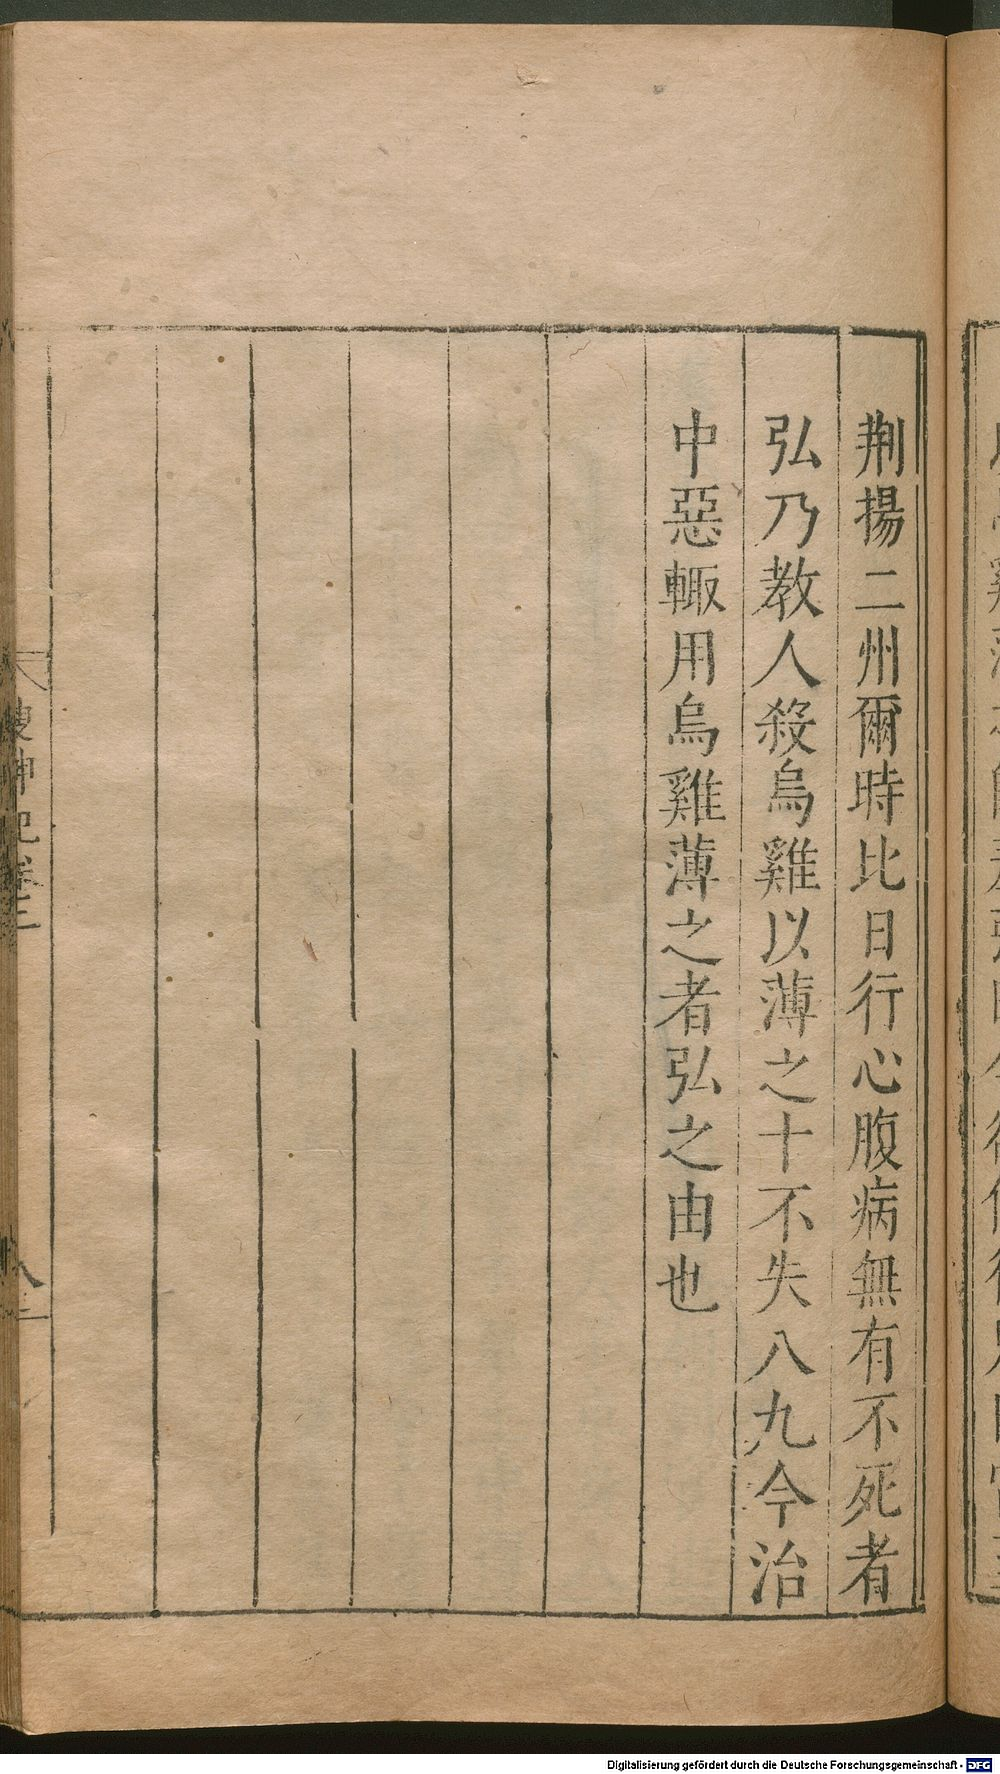 荆揚二州爾時比日行心腹病無有不死者
弘乃教人殺烏雞以薄之十不失八九今治
中惡輙用烏雞薄之者弘之由也
搜神記卷三
Digitalisierung gefördert durch die Deutsche Forschungsgemeinschaft - DFG